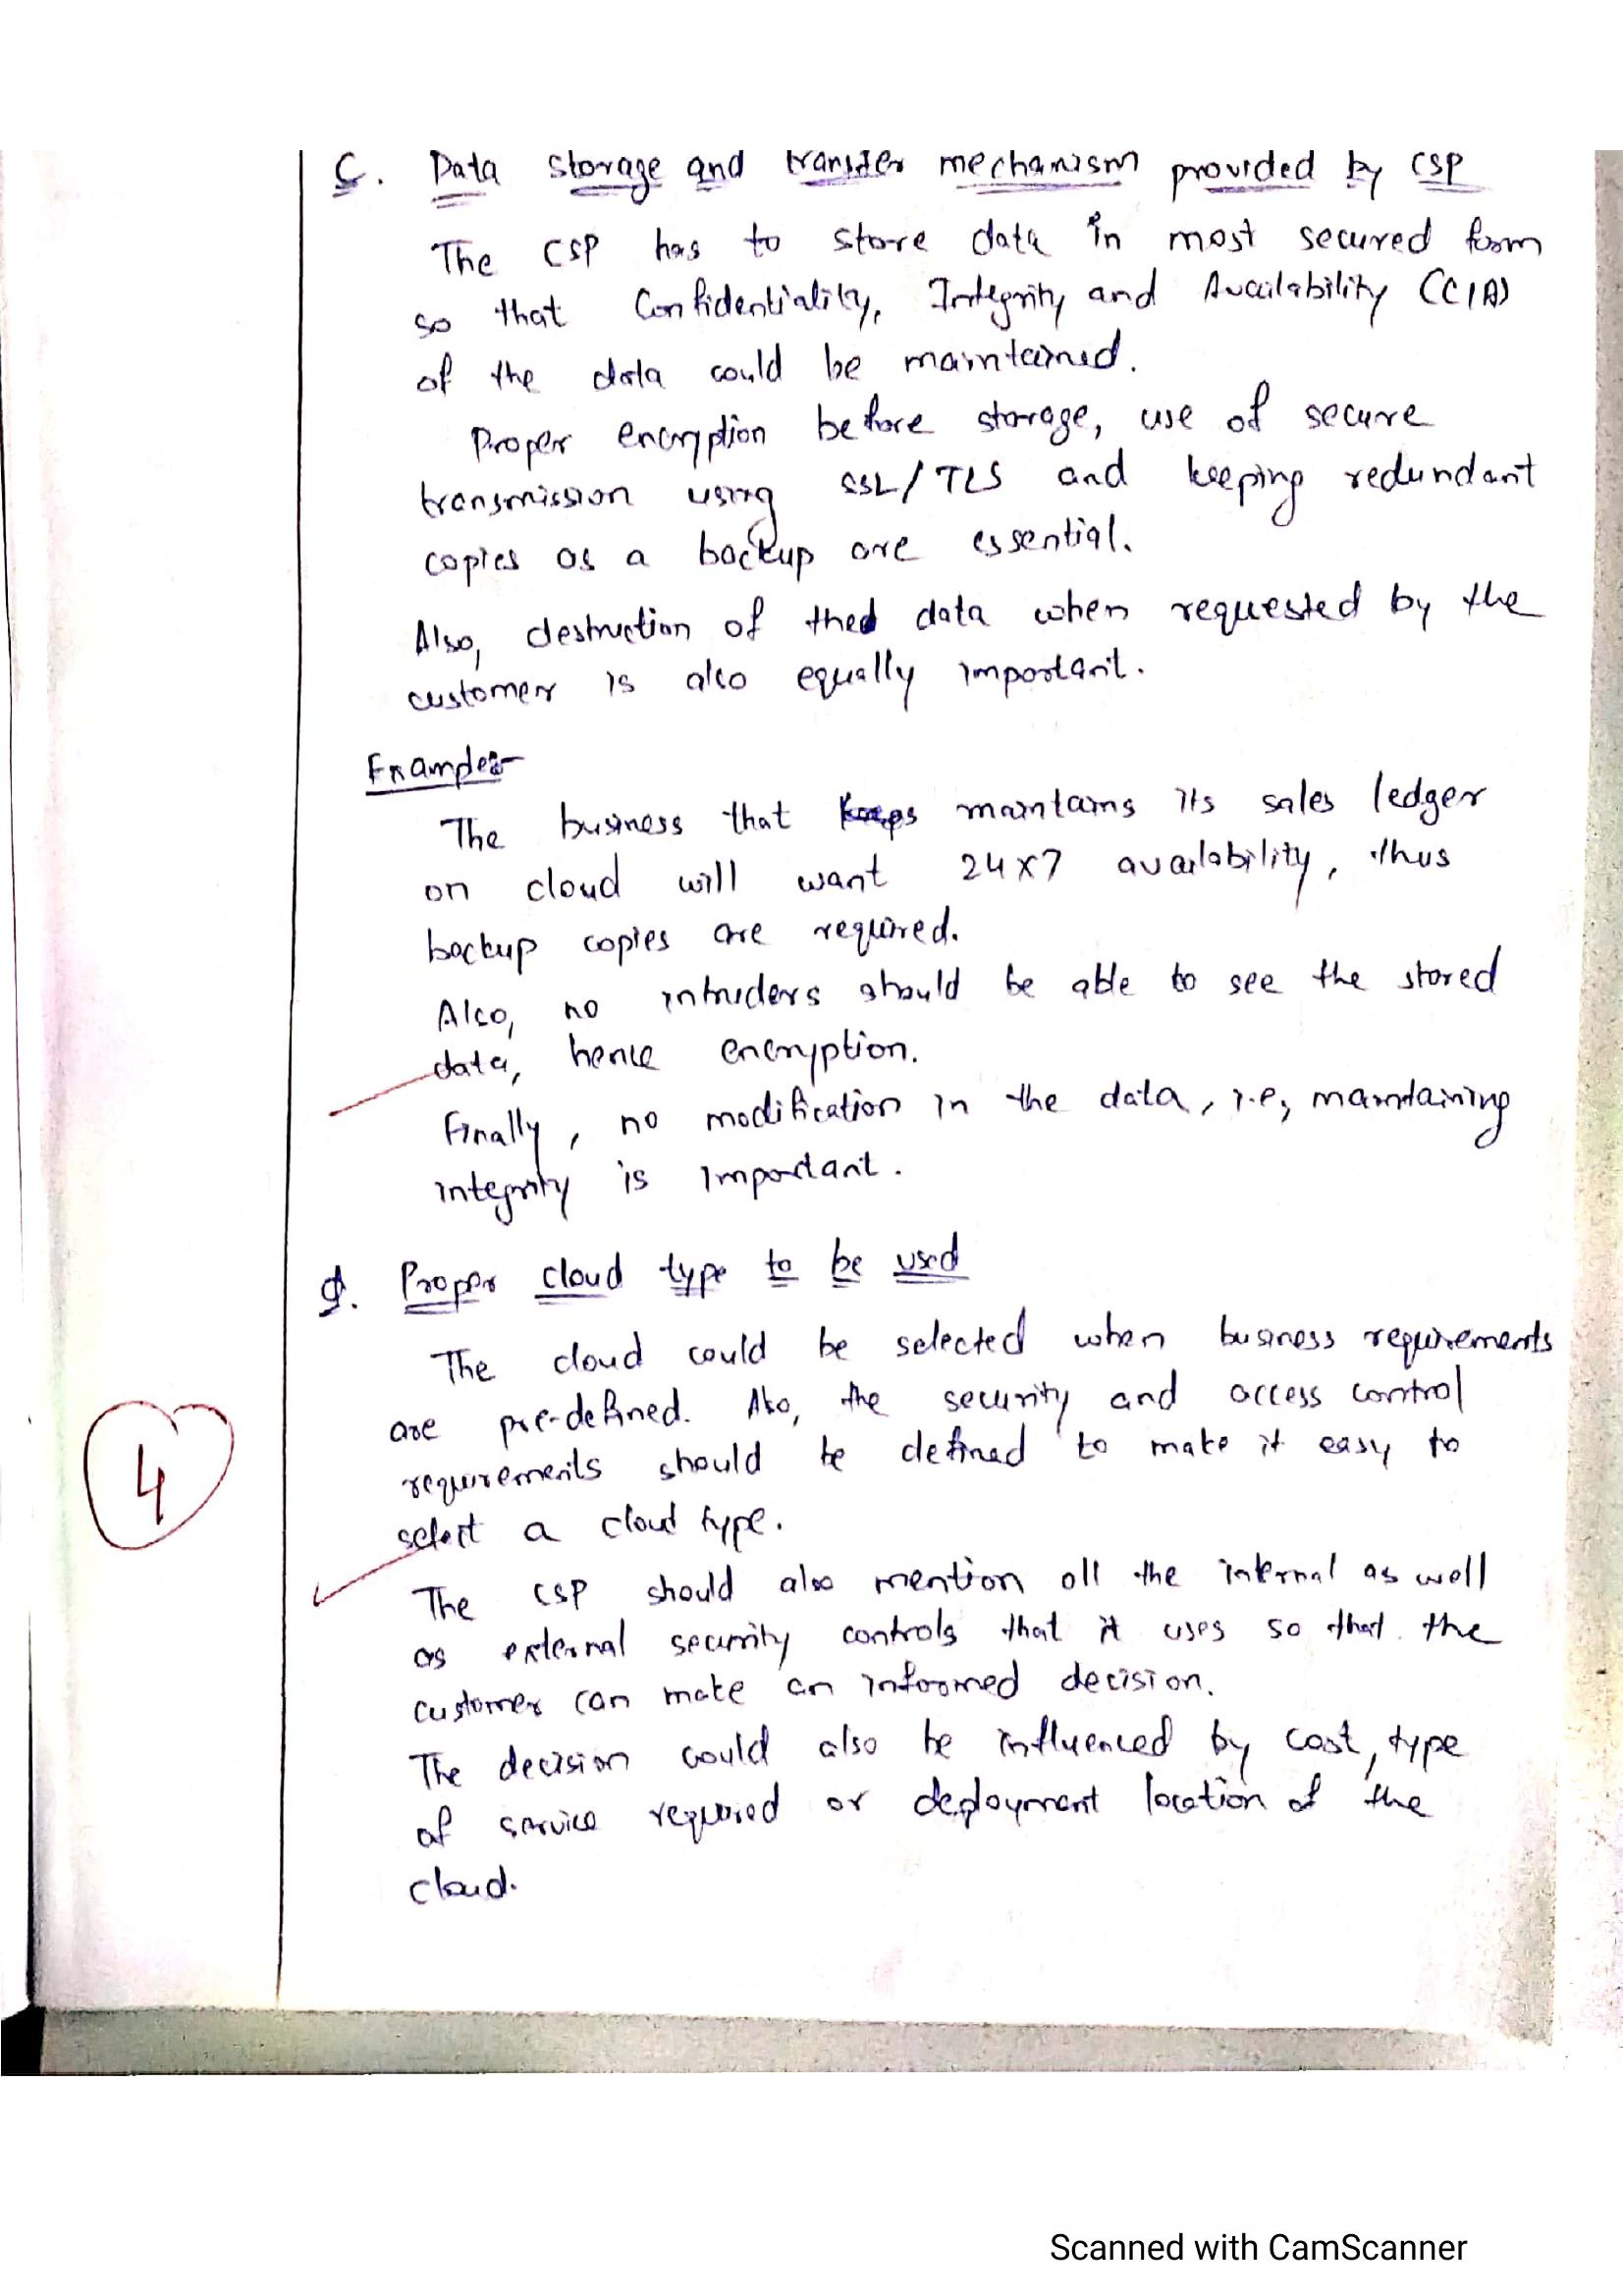 C. Data storage and transfer mechanism provided by CSP
The CSP has to store data in most secured form
so that Confidentiality, Integrity and Availability (CIA)
of the data could be maintained.
Proper encryption before storage, use of secure
transmission using SSL/TLS and keeping redundant
copies as a backup are essential.
Also, destruction of the data when requested by the
customer is also equally important.
Example:-
The business that maintains its sales ledger
on cloud will want 24x7 availability, thus
backup copies are required.
Also, no intruders should be able to see the stored
data, hence encryption.
Finally, no modification in the data, i.e, maintaining
integrity is important.
d. Proper cloud type to be used
The cloud could be selected when business requirements
are pre-defined. Also, the security and access control
requirements should be defined to make it easy to
select a cloud type.
4
The CSP should also mention all the internal as well
as external security controls that it uses so that the
customer can make an informed decision.
The decision could also be influenced by cost, type
of service required or deployment location of the
cloud.
Scanned with CamScanner